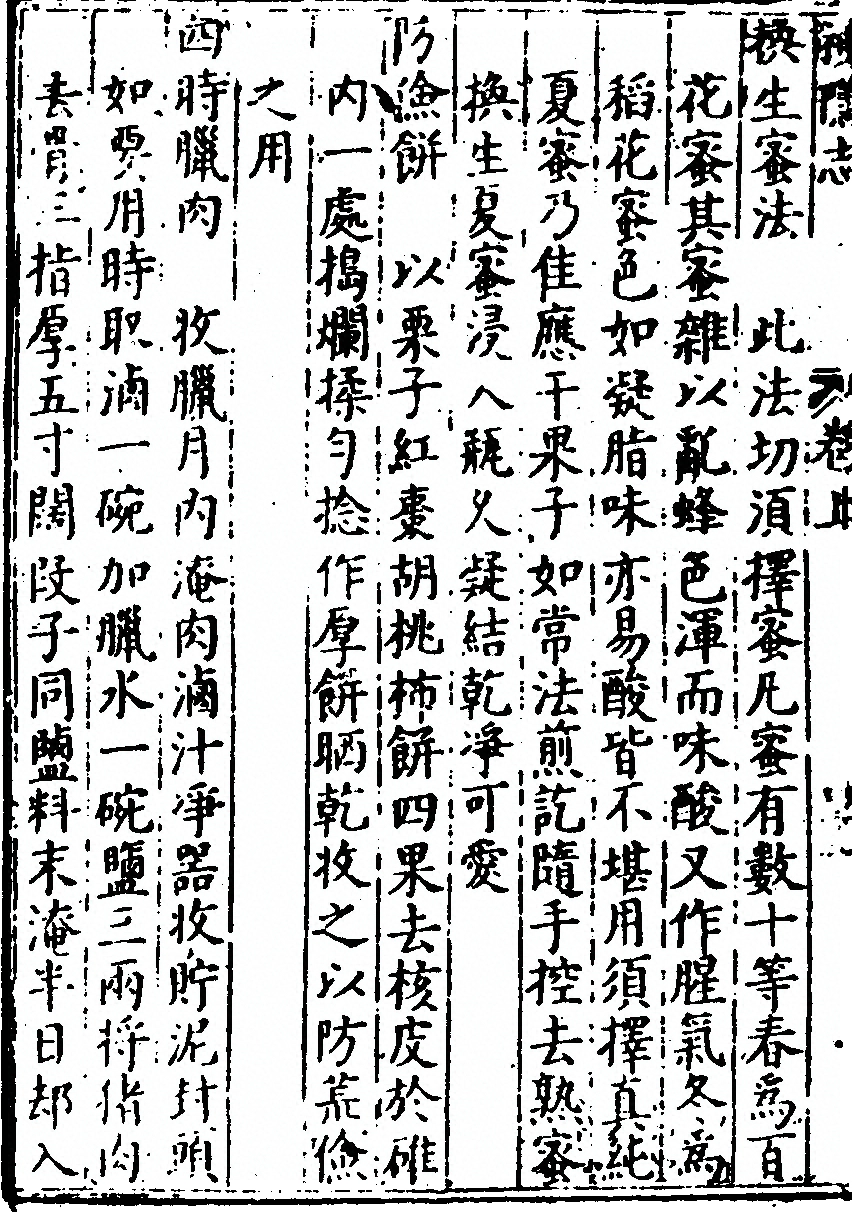 隱志　卷上
換生蜜法　此法切須擇蜜凡蜜有數十等春為百
花蜜其蜜雜以亂蜂色渾而味酸又作腥氣冬為
稻花蜜色如凝脂味亦易酸皆不堪用須擇真純
夏蜜乃佳應干果子如常法煎訖隨手控去熟蜜
換生夏蜜浸入瓶久凝結乾凈可愛
防儉餅　以栗子紅棗胡桃柿餅四果去核皮於碓
內一處搗爛揉勻捻作厚餅晒乾收之以防荒儉
之用
四時臘肉　收臘月內淹肉滷汁凈器收貯泥封頭
如要用時取滷一碗加臘水一碗鹽三兩將猪肉
去骨三指厚五寸闊段子同鹽料末淹半日却入